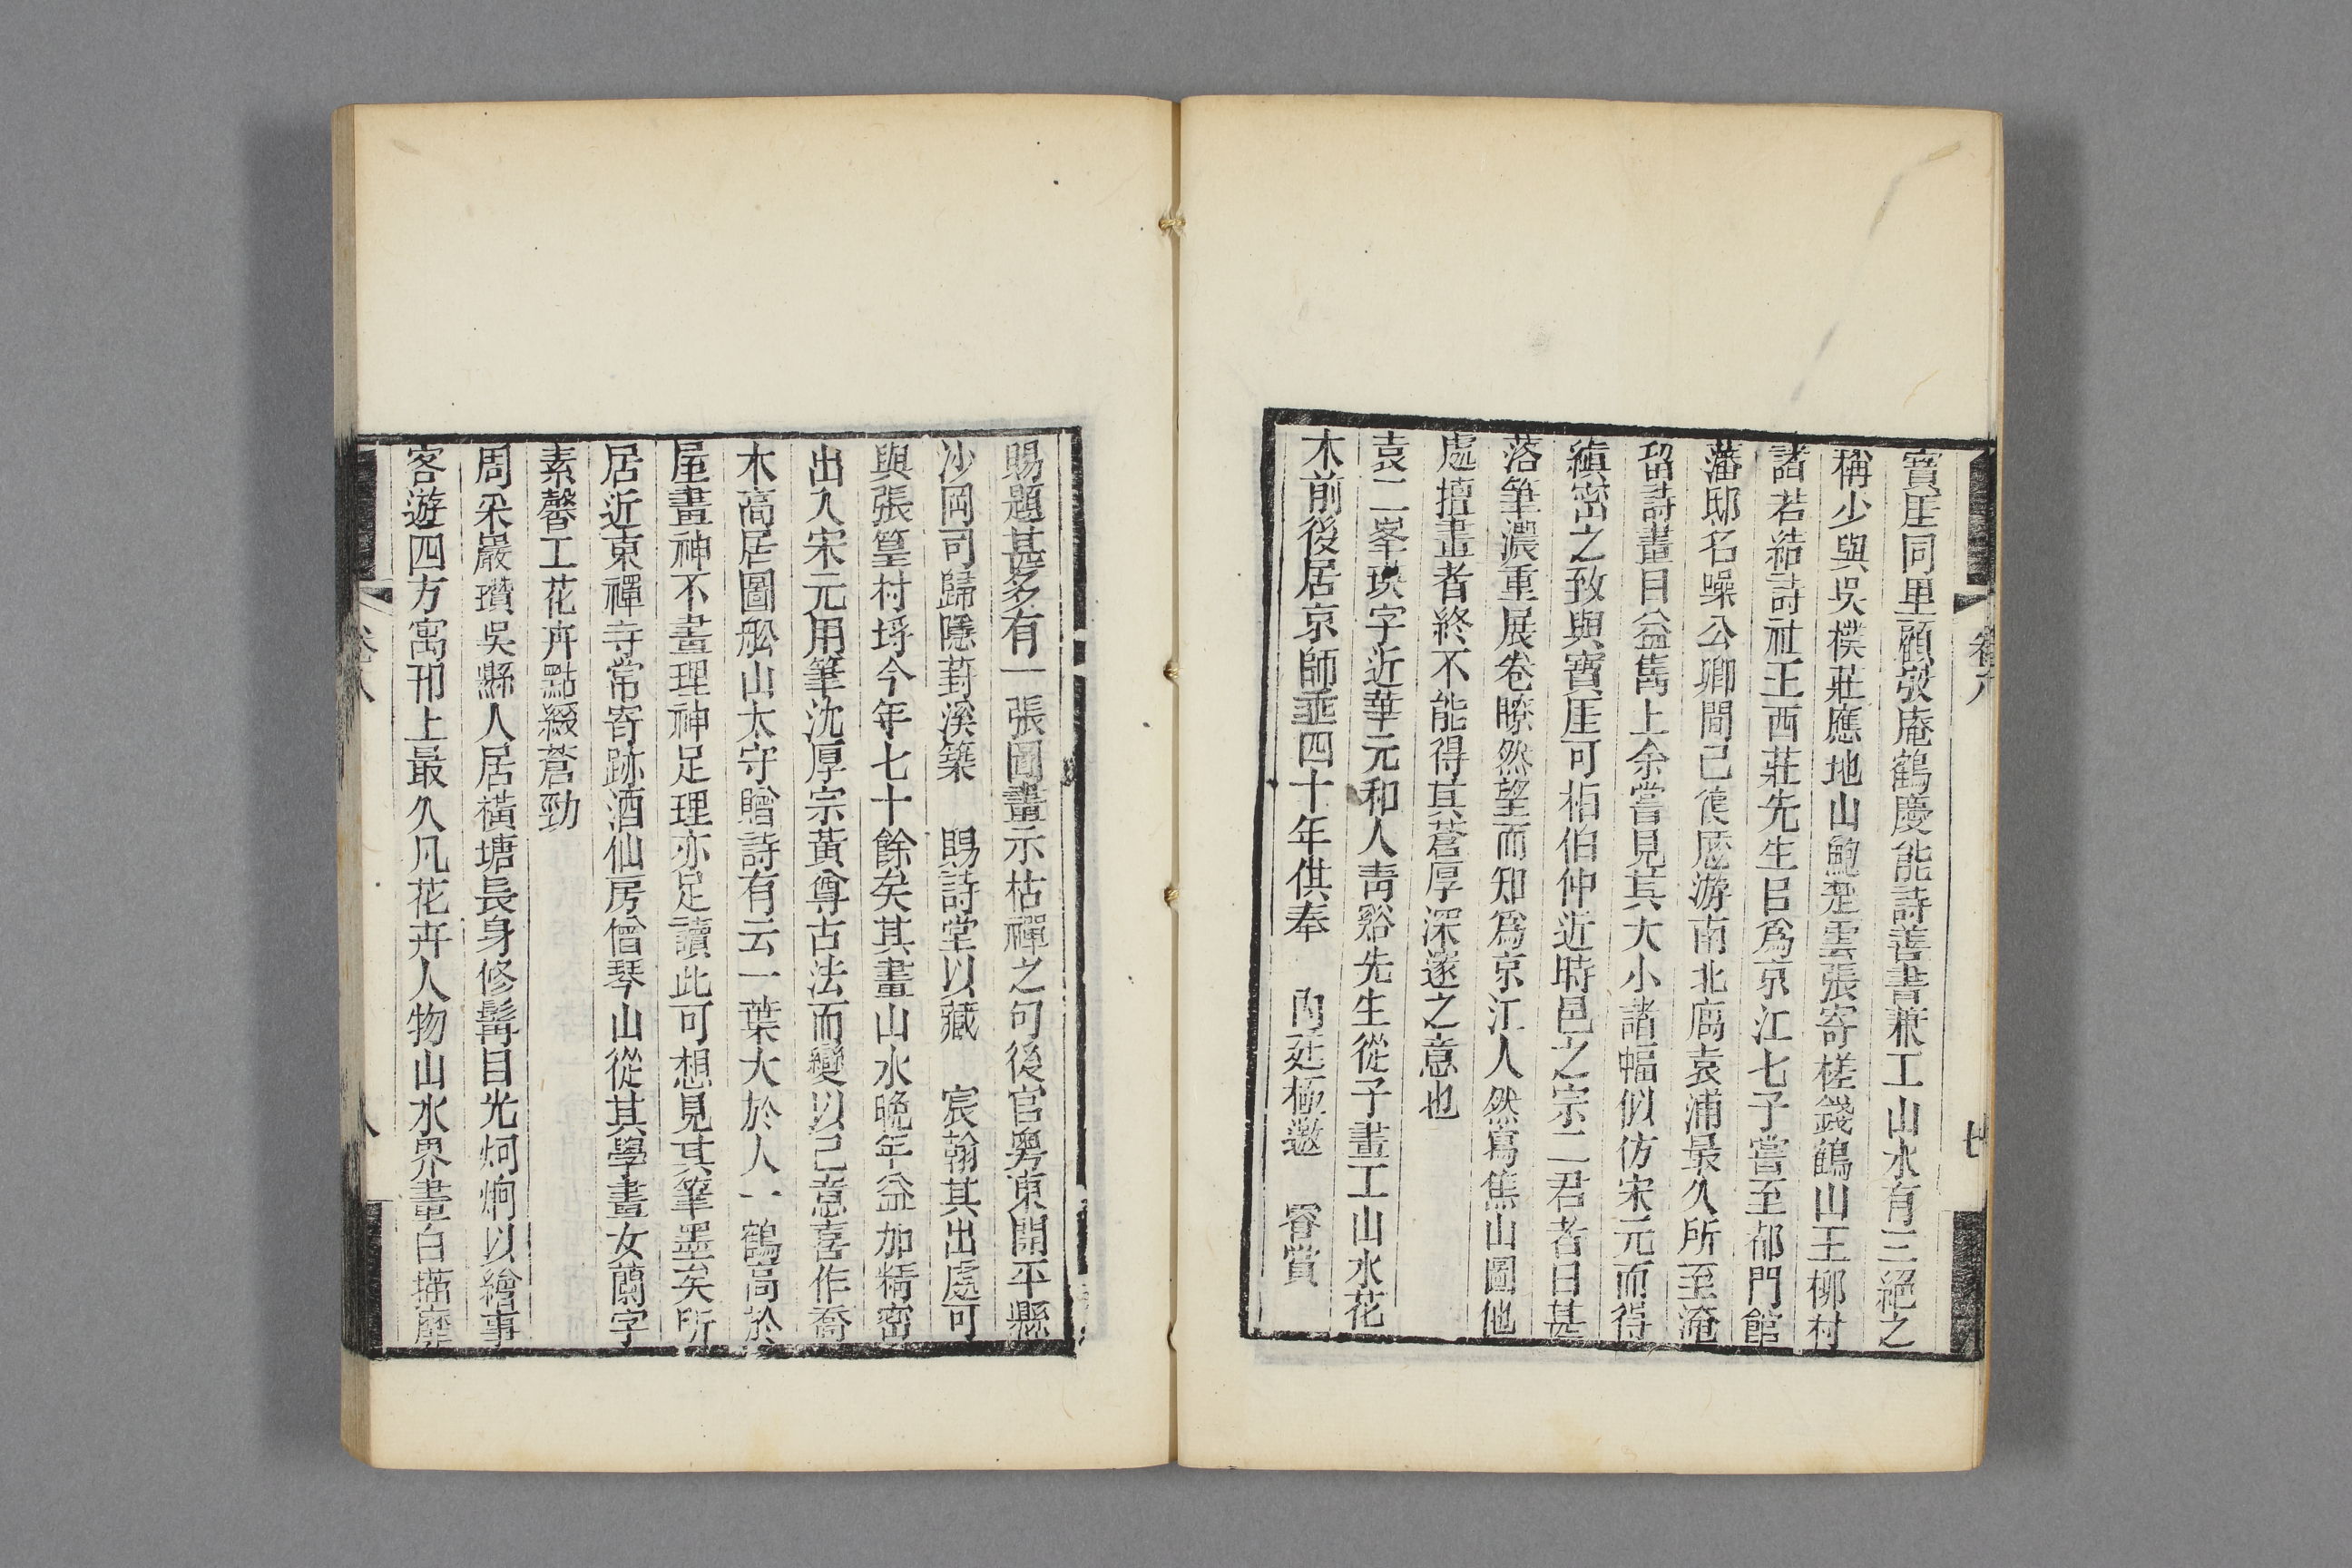 寶厓同里顧弢庵鶴慶能詩善書兼工山水有三絕之
稱少與吳樸莊應地山鮑楚雲張寄槎錢鶴山王柳村
諸君結詩社王西莊先生目爲京江七子嘗至都門館
藩邸名噪公卿間已復歷游南北廣袁浦最久所至淹
留詩畫日益雋上余嘗見其大小諸幅似仿宋元而得
縝密之致與寶厓可相伯仲近時邑之宗二君者日甚
落筆濃重展卷瞭然望而知爲京江人然寫焦山圖他
處擅畫者終不能得其蒼厚深邃之意也
袁二峯瑛字近華元和人靑谿先生從子畫工山水花
木前後居京師垂四十年供奉 內廷極邀 睿賞
卷八
七
賜題甚多有一張圖畫示枯禪之句後官粵東開平縣
沙岡司歸隱葑溪築 賜詩堂以藏 宸翰其出處可
與張篁村埒今年七十餘矣其畫山水晚年益加精密
出入宋元用筆沈厚宗黃尊古法而變以己意喜作喬
木高居圖舩山太守贈詩有云一葉大於人一鶴高於
屋畫神不畫理神足理亦足讀此可想見其筆墨矣所
居近東禪寺常寄跡酒仙房僧琴山從其學畫女蘭字
素馨工花卉點綴蒼勁
周采巖瓚吳縣人居橫塘長身修髯目光炯炯以繪事
客遊四方寓邗上最久凡花卉人物山水界畫白描靡
卷八
八